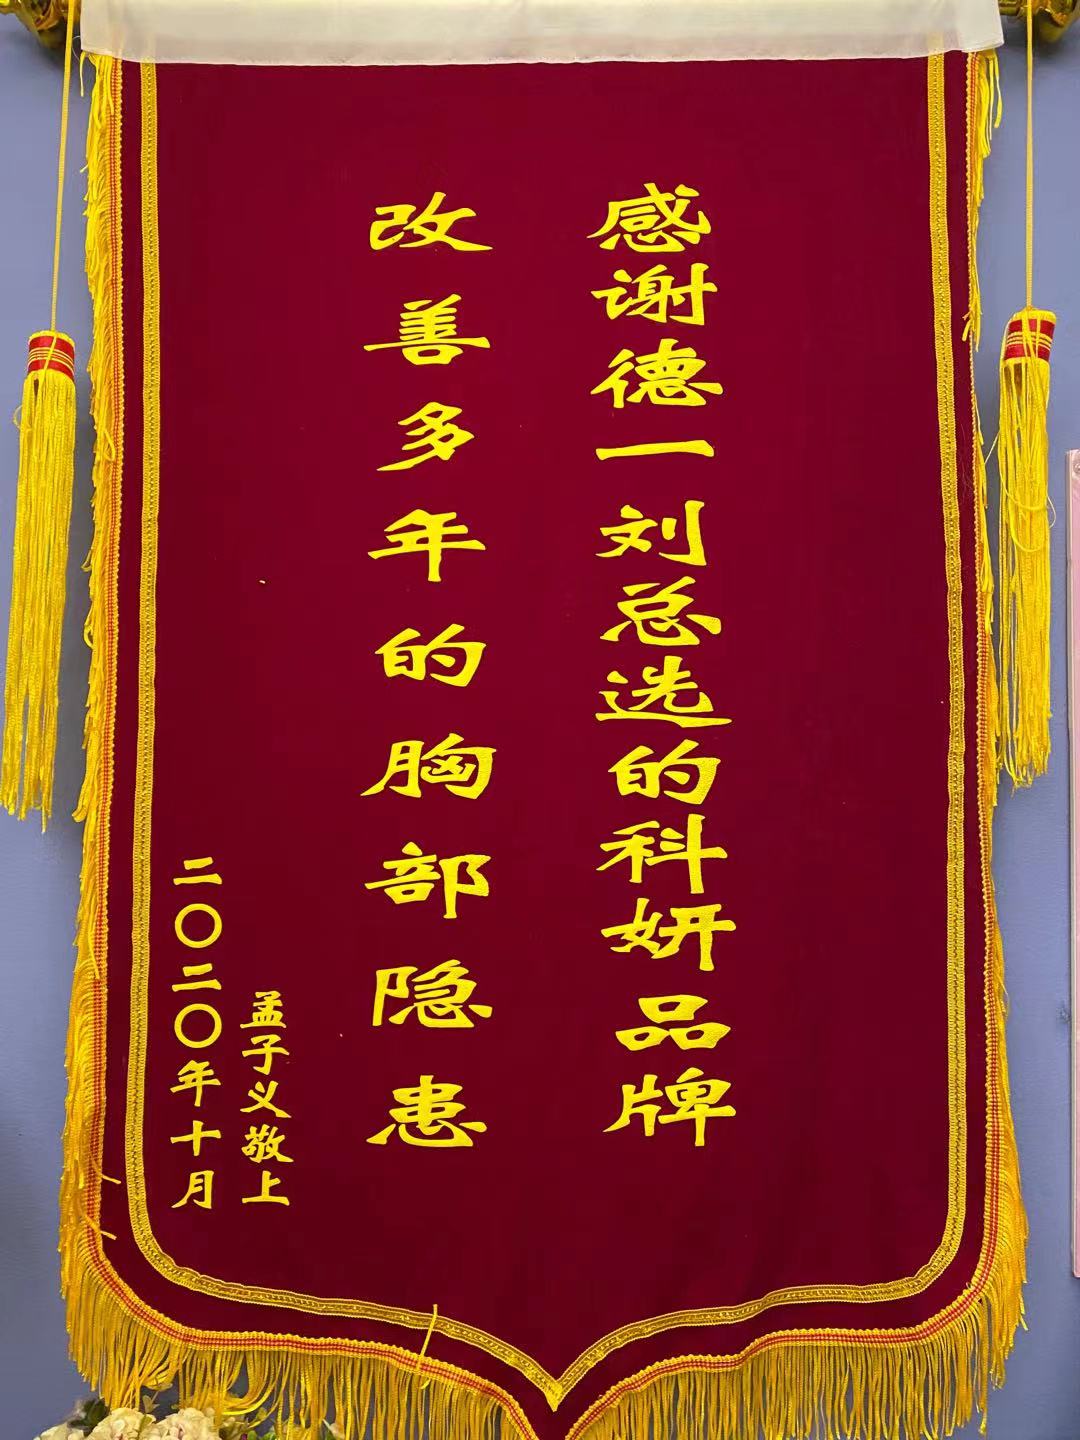 感谢德一刘总选的科妍品牌
改善多年的胸部隐患
孟子义敬上
二〇二〇年十月